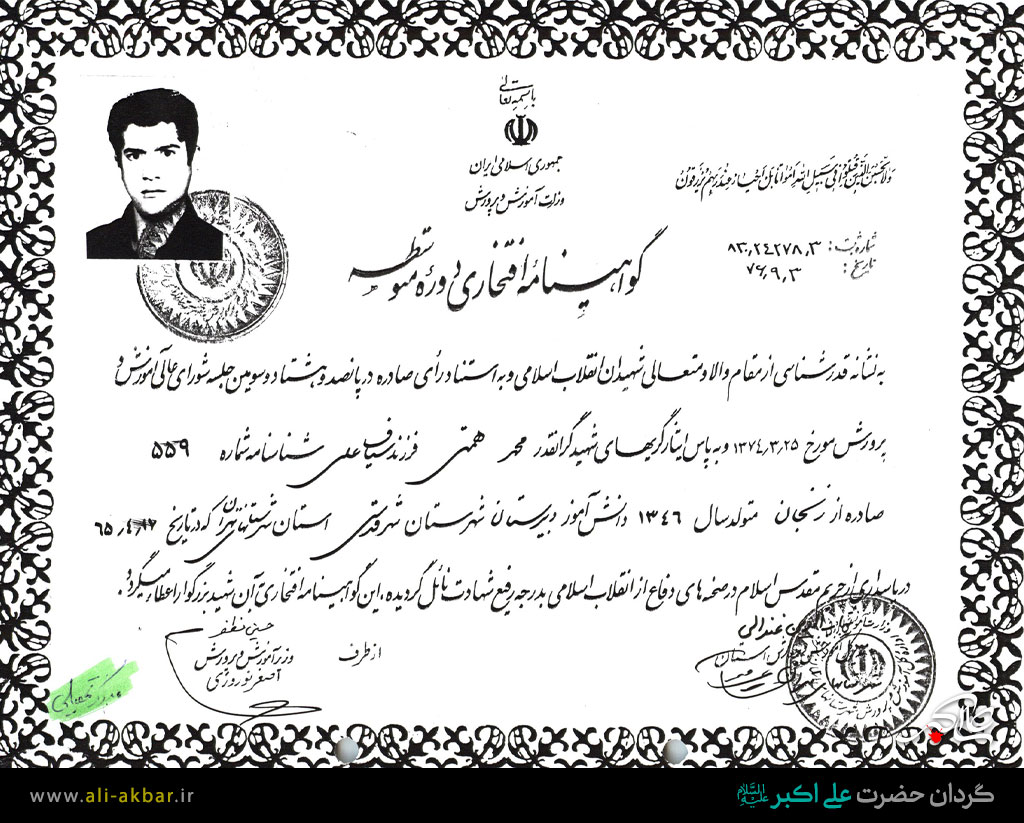 باسمه تعالی
جمهوری اسلامی ایران
وزارت آموزش و پرورش
ولا تحسبن الذین قتلوا فی سبیل الله امواتا بل احیاء عند ربهم یرزقون
شماره ثبت: ۸۳٫۲۴۲۷۸٫۳
تاریخ: ۷۶٫۹٫۳
گواهینامهٔ افتخاری دورهٔ متوسطه
به نشانه قدرشناسی از مقام والا و متعالی شهیدان انقلاب اسلامی و به استناد رأی صادره در پانصد و هشتاد و سومین جلسه شورای عالی آموزش و
پرورش مورخ ۱۳۷۴٫۳٫۲۵ و به پاس ایثارگریهای شهید گرانقدر همتی فرزند ضیافعلی شناسنامه شماره ۵۵۹
صادره از زنجان متولد سال ۱۳۴۶ دانش آموز دبیرستان شهرستان شهرقدس استان تهران که در تاریخ ۶۵٫۴
در پاسداری از حریم مقدس اسلام در صحنه های دفاع از انقلاب اسلامی بدرجه رفیع شهادت نائل گردیده، این گواهینامه افتخاری به آن شهید بزرگوار اعطاء میگردد.
از طرف
حسین مظفر
وزیر آموزش و پرورش
اصغر نوروزی
مدرک تحصیلی
www.ali-akbar.ir
گردان حضرت علی اکبر علیه السلام